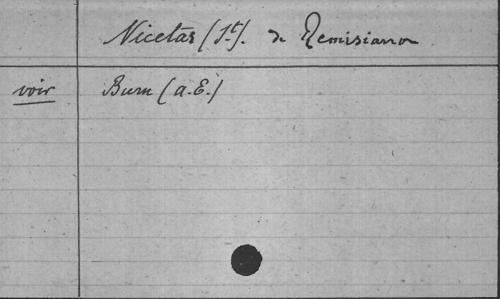 Nicetas (St). de Remisiana
voir Burn (a.E.)